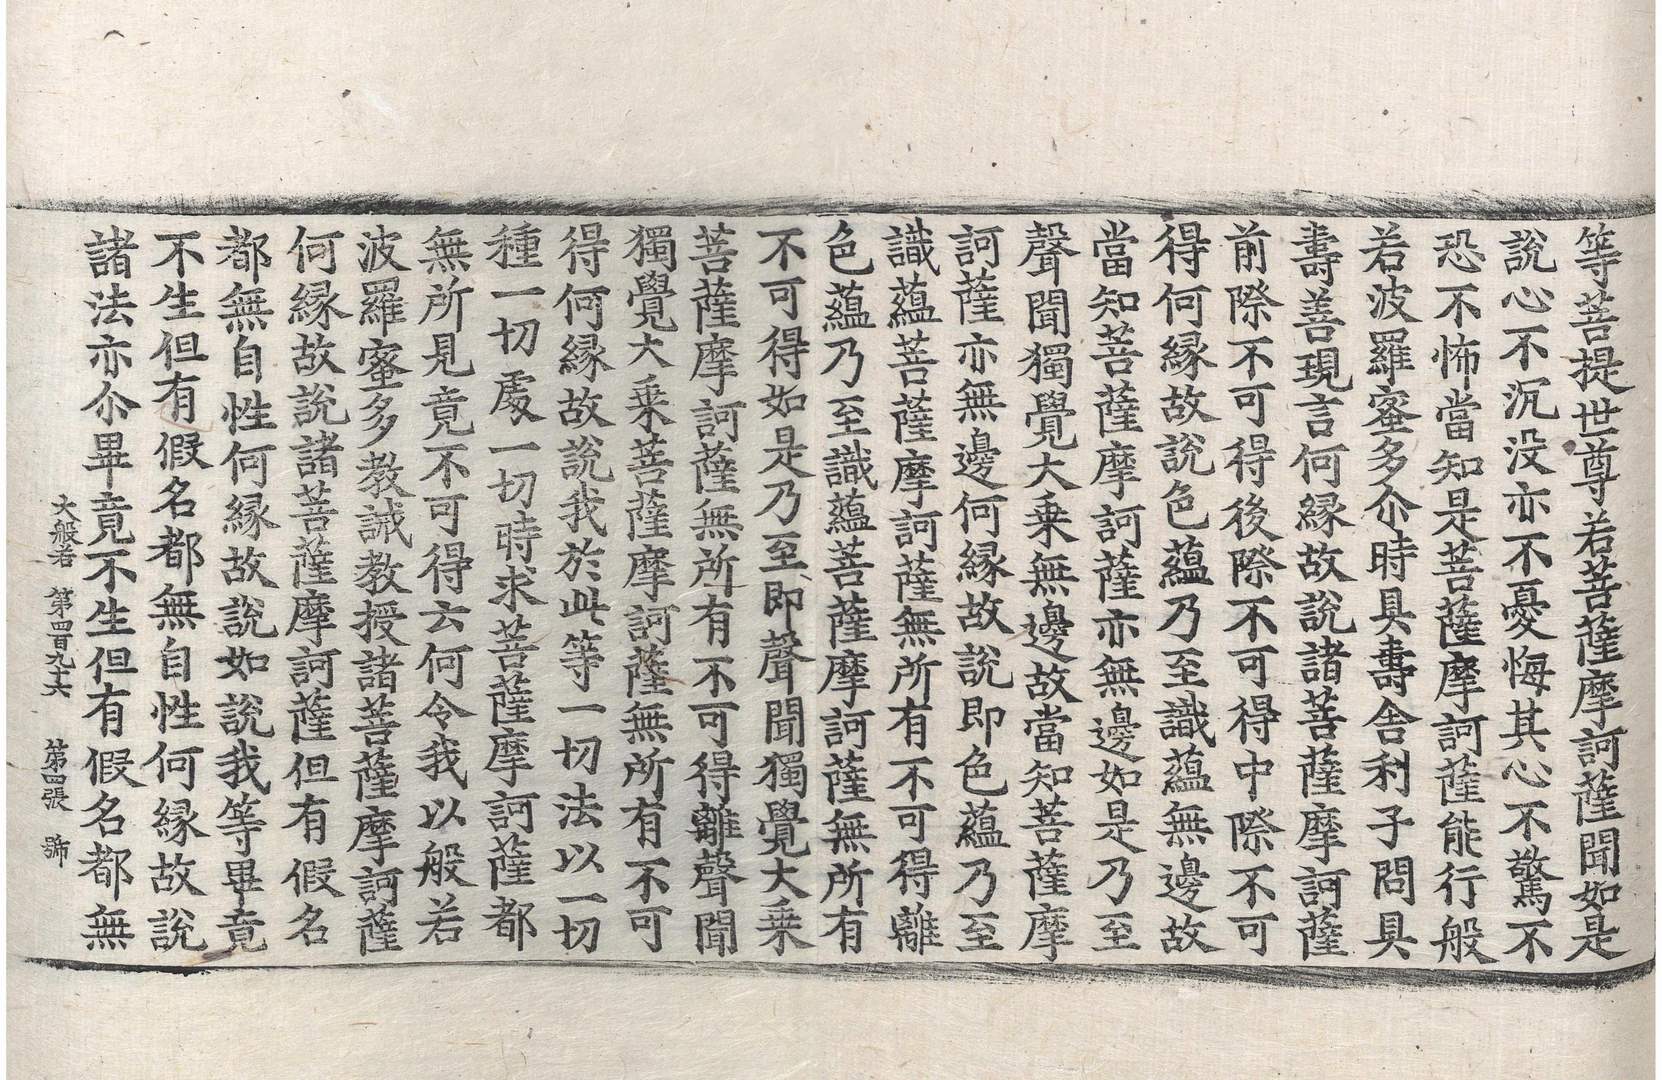 等菩提世尊若菩薩摩訶薩聞如是
說心不沉没亦不憂悔其心不驚不
恐不怖當知是菩薩摩訶薩能行般
若波羅蜜多尒時具壽舍利子問具
壽善現言何縁故說諸菩薩摩訶薩
前際不可得後際不可得中際不可
得何縁故說色蘊乃至識蘊無邊故
當知菩薩摩訶薩亦無邊如是乃至
聲聞獨覺大乗無邊故當知菩薩摩
訶薩亦無邊何縁故說即色蘊乃至
識蘊菩薩摩訶薩無所有不可得離
色蘊乃至識蘊菩薩摩訶薩無所有
不可得如是乃至即聲聞獨覺大乗
菩薩摩訶薩無所有不可得離聲聞
獨覺大乗菩薩摩訶薩無所有不可
得何縁故說我於此等一切法以一切
種一切處一切時求菩薩摩訶薩都
無所見竟不可得云何令我以般若
波羅蜜多教誡教授諸菩薩摩訶薩
何縁故說諸菩薩摩訶薩但有假名
都無自性何縁故說如說我等畢竟
不生但有假名都無自性何縁故說
諸法亦尒畢竟不生但有假名都無
大般若 第四百九十六 第四張 號